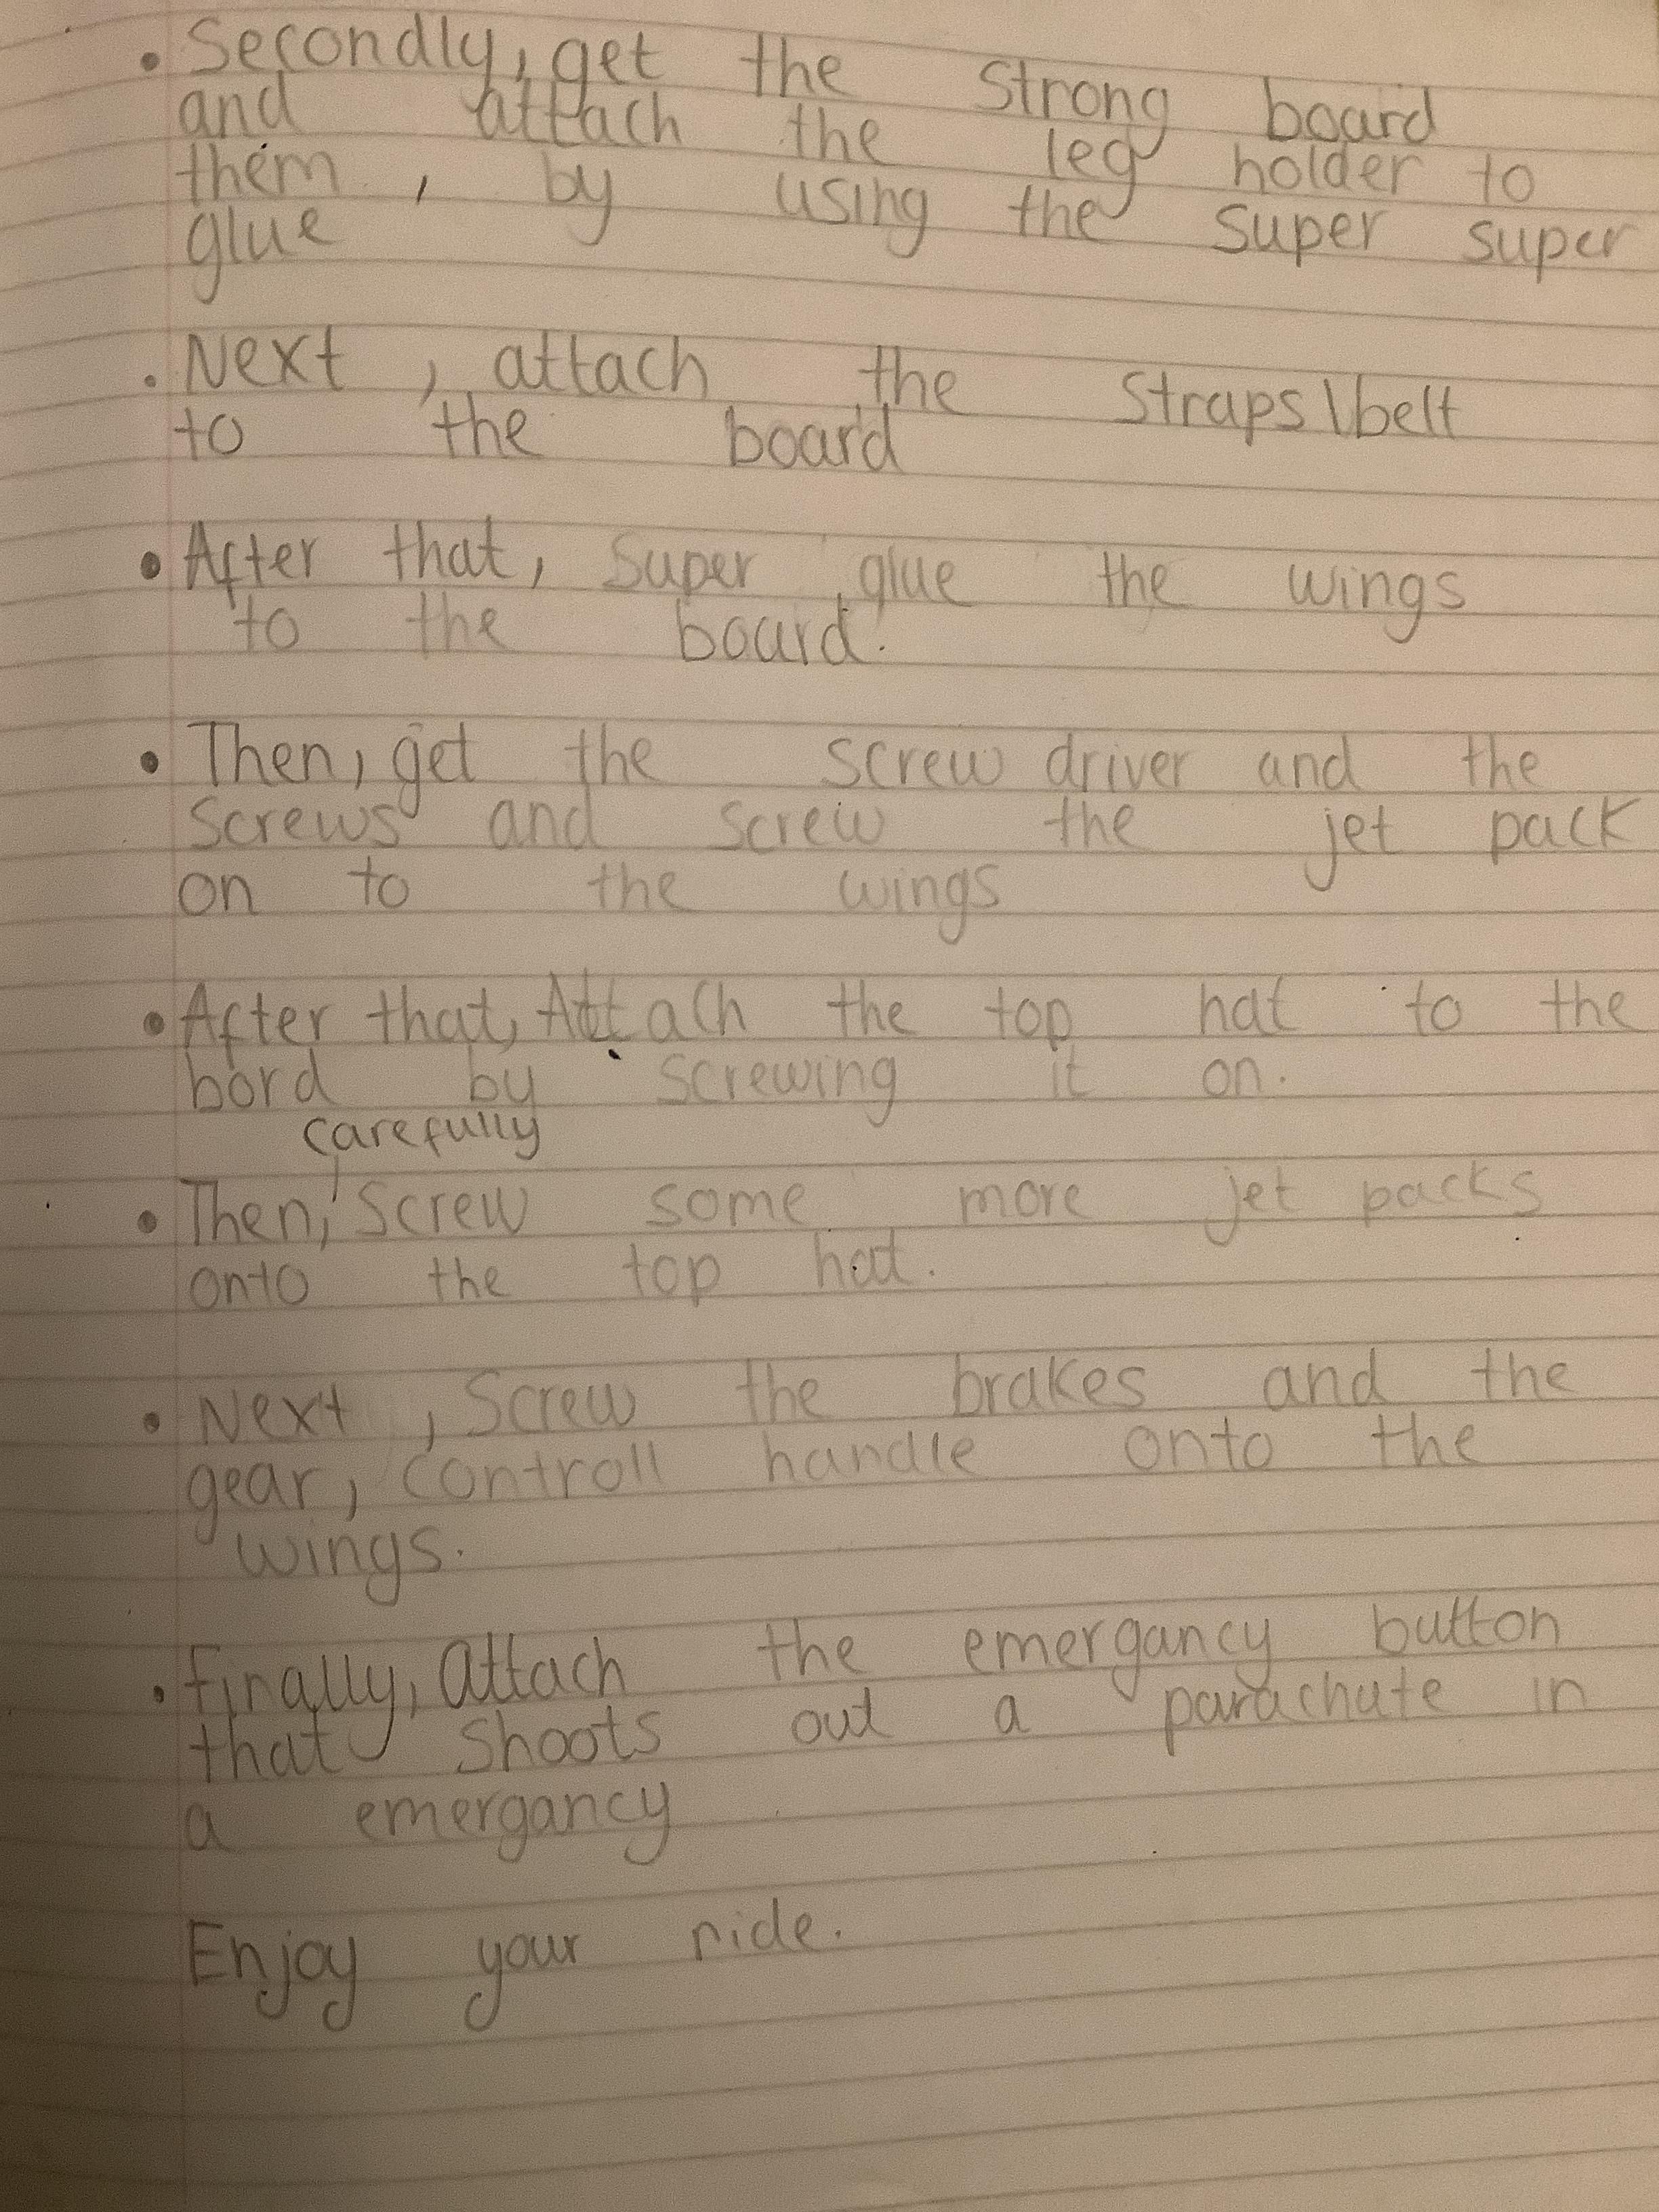 • Secondly, get the strong board
and attach the leg holder to
them, by using the super super
glue
• Next, attach the straps\belt
to the board
• After that, super glue the wings
to the board.
• Then, get the screw driver and the
screws and screw the jet pack
on to the wings
• After that, Attach the top hat to the
bord by screwing it on.
carefully
• Then, screw some more jet packs
onto the top hat.
• Next, screw the brakes and the
gear, controll handle onto the
wings.
• finally, Attach the emergancy button
that shoots out a parachute in
a emergancy
Enjoy your ride.